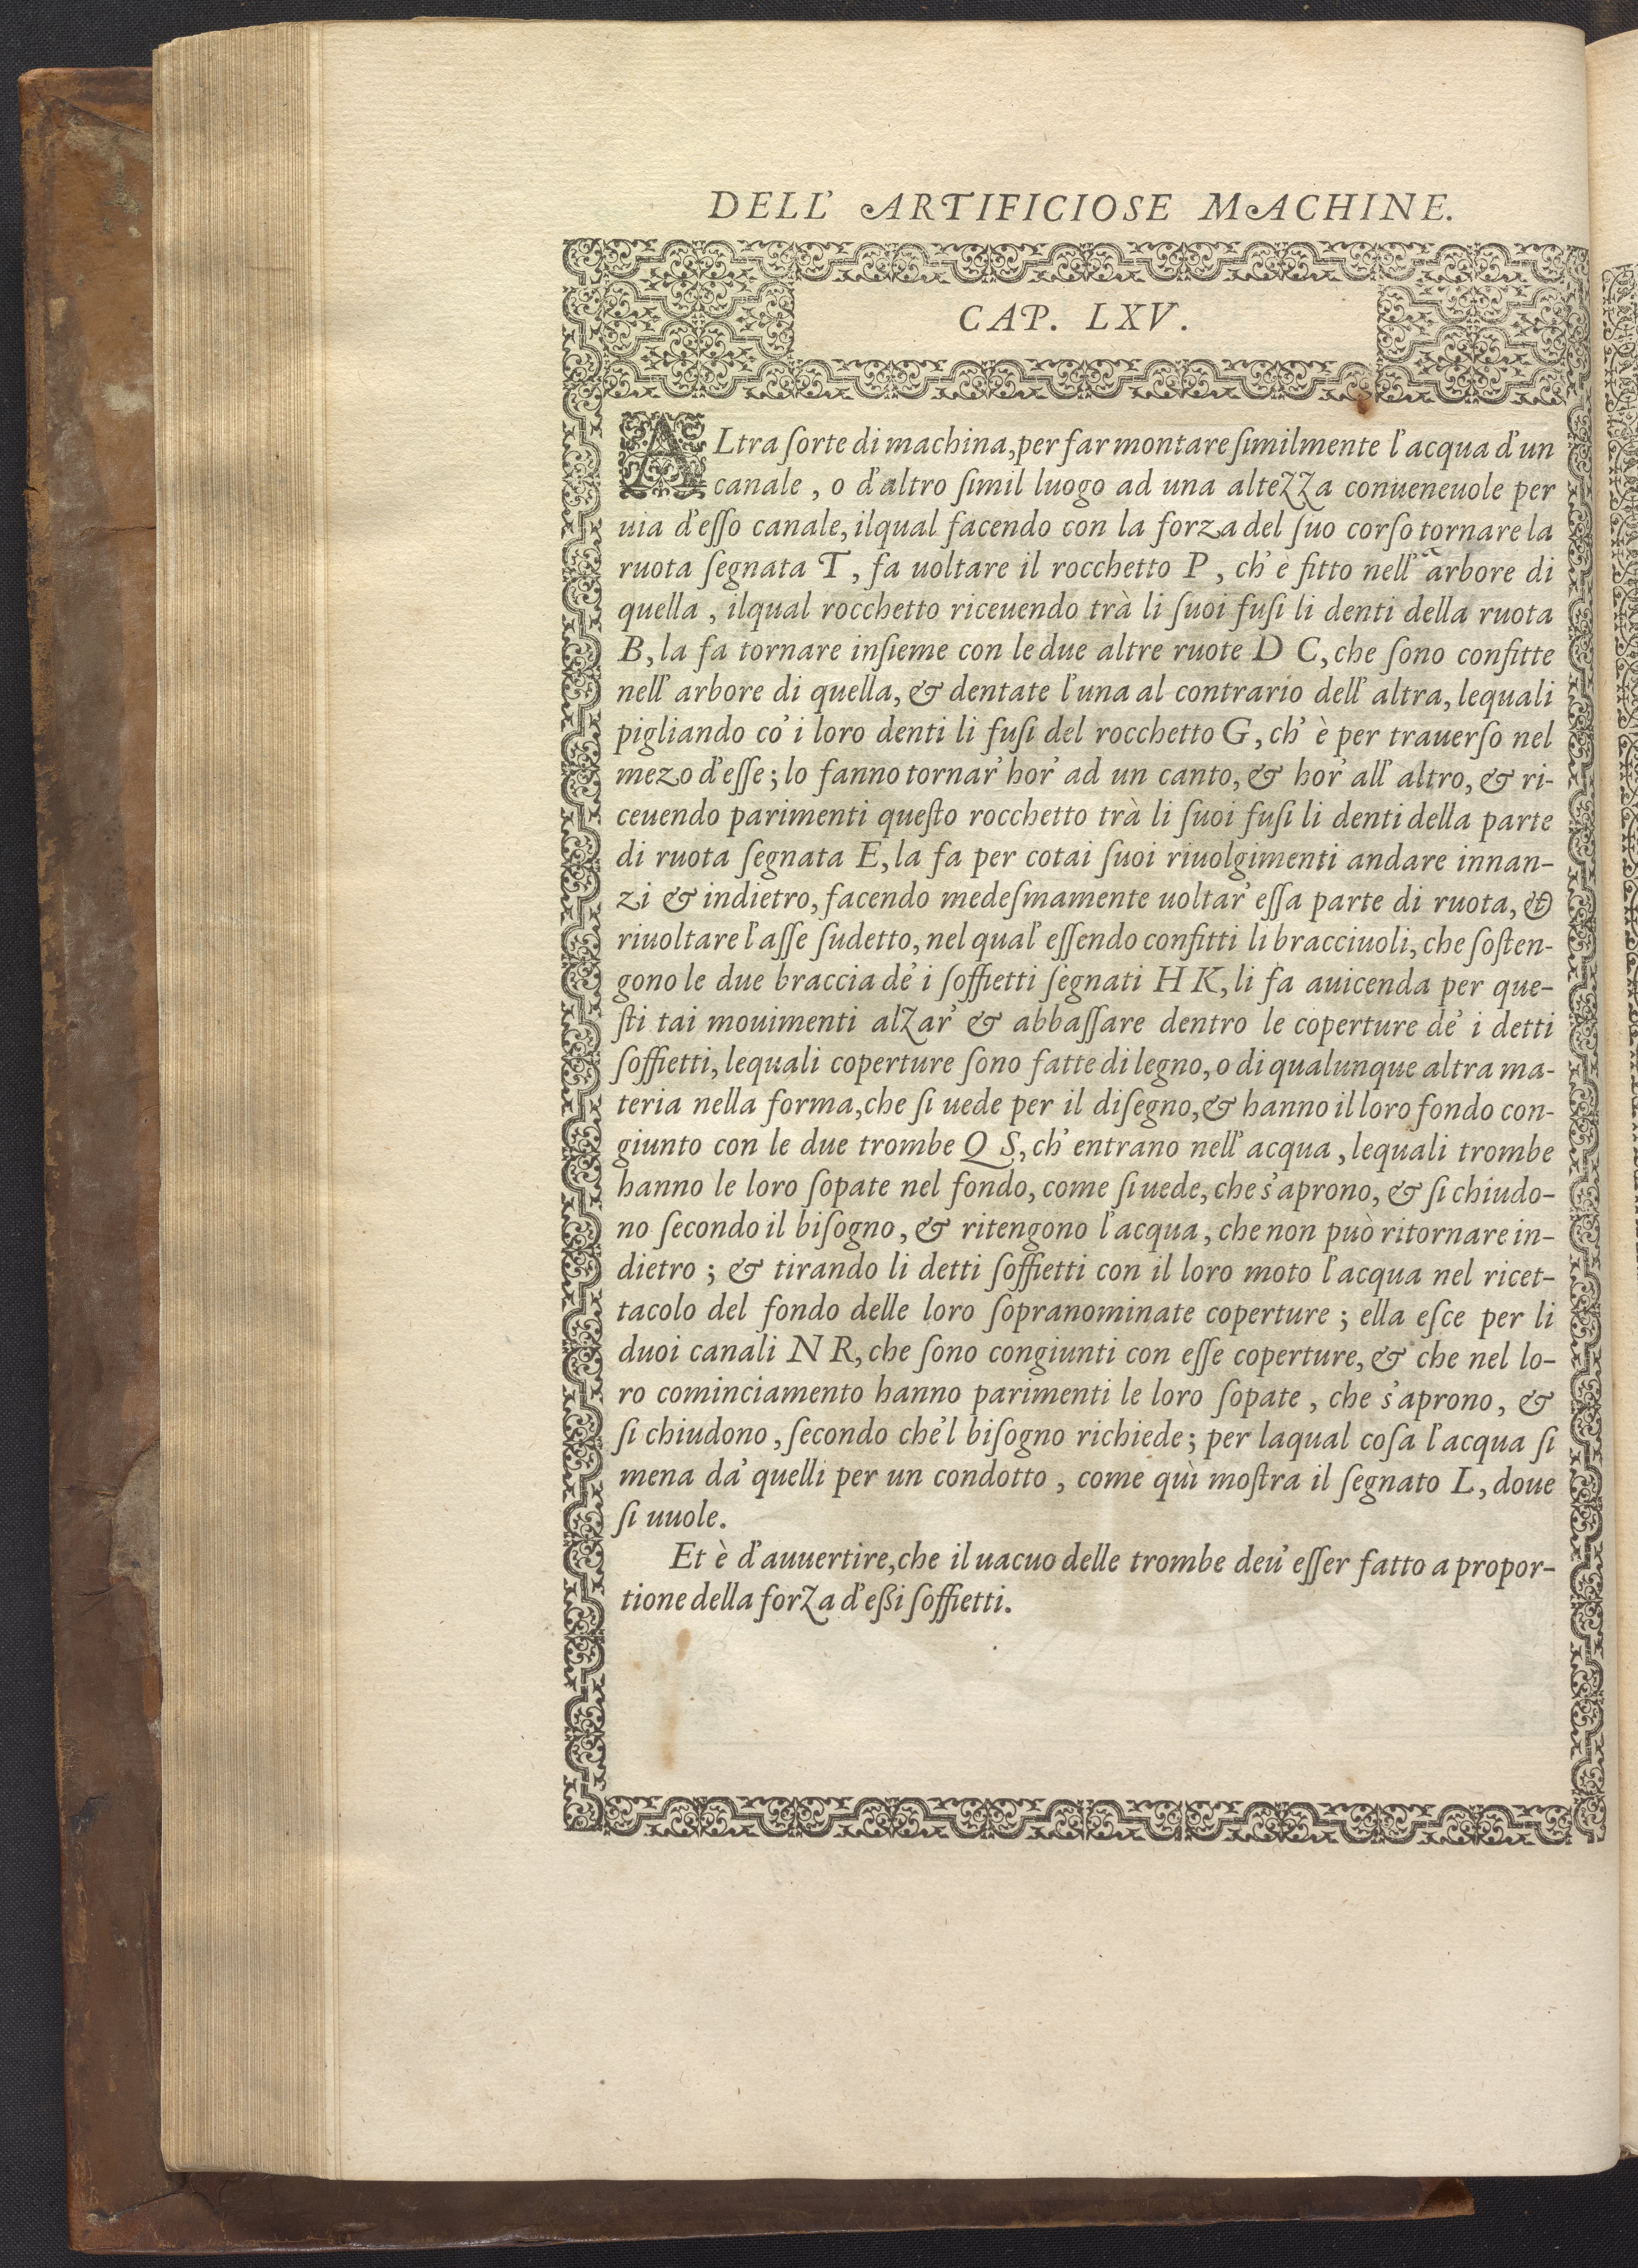 DELL' ARTIFICIOSE MACHINE.
CAP. LXV.
ALtra ſorte di machina, per far montare ſimilmente l'acqua d'un
canale, o d'altro ſimil luogo ad una altezza conueneuole per
uia d'eſſo canale, ilqual facendo con la forza del ſuo corſo tornare la
ruota ſegnata T, fa uoltare il rocchetto P, ch' è fitto nell' arbore di
quella, ilqual rocchetto riceuendo trà li ſuoi fuſi li denti della ruota
B, la fa tornare inſieme con le due altre ruote D C, che ſono confitte
nell' arbore di quella, & dentate l'una al contrario dell' altra, lequali
pigliando co' i loro denti li fuſi del rocchetto G, ch' è per trauerſo nel
mezo d'eſſe; lo fanno tornar' hor' ad un canto, & hor' all' altro, & ri-
ceuendo parimenti queſto rocchetto trà li ſuoi fuſi li denti della parte
di ruota ſegnata E, la fa per cotai ſuoi riuolgimenti andare innan-
zi & indietro, facendo medeſmamente uoltar' eſſa parte di ruota, &
riuoltare l'aſſe ſudetto, nel qual' eſſendo confitti li bracciuoli, che ſoſten-
gono le due braccia de' i ſoffietti ſegnati H K, li fa auicenda per que-
ſti tai mouimenti alzar' & abbaſſare dentro le coperture de' i detti
ſoffietti, lequali coperture ſono fatte di legno, o di qualunque altra ma-
teria nella forma, che ſi uede per il diſegno, & hanno il loro fondo con-
giunto con le due trombe Q S, ch' entrano nell' acqua, lequali trombe
hanno le loro ſopate nel fondo, come ſi uede, che s'aprono, & ſi chiudo-
no ſecondo il biſogno, & ritengono l'acqua, che non può ritornare in-
dietro; & tirando li detti ſoffietti con il loro moto l'acqua nel ricet-
tacolo del fondo delle loro ſopranominate coperture; ella eſce per li
duoi canali N R, che ſono congiunti con eſſe coperture, & che nel lo-
ro cominciamento hanno parimenti le loro ſopate, che s'aprono, &
ſi chiudono, ſecondo che'l biſogno richiede; per laqual coſa l'acqua ſi
mena da' quelli per un condotto, come quì moſtra il ſegnato L, doue
ſi uuole.
Et è d'auuertire, che il uacuo delle trombe deu' eſſer fatto a propor-
tione della forza d'eßi ſoffietti.